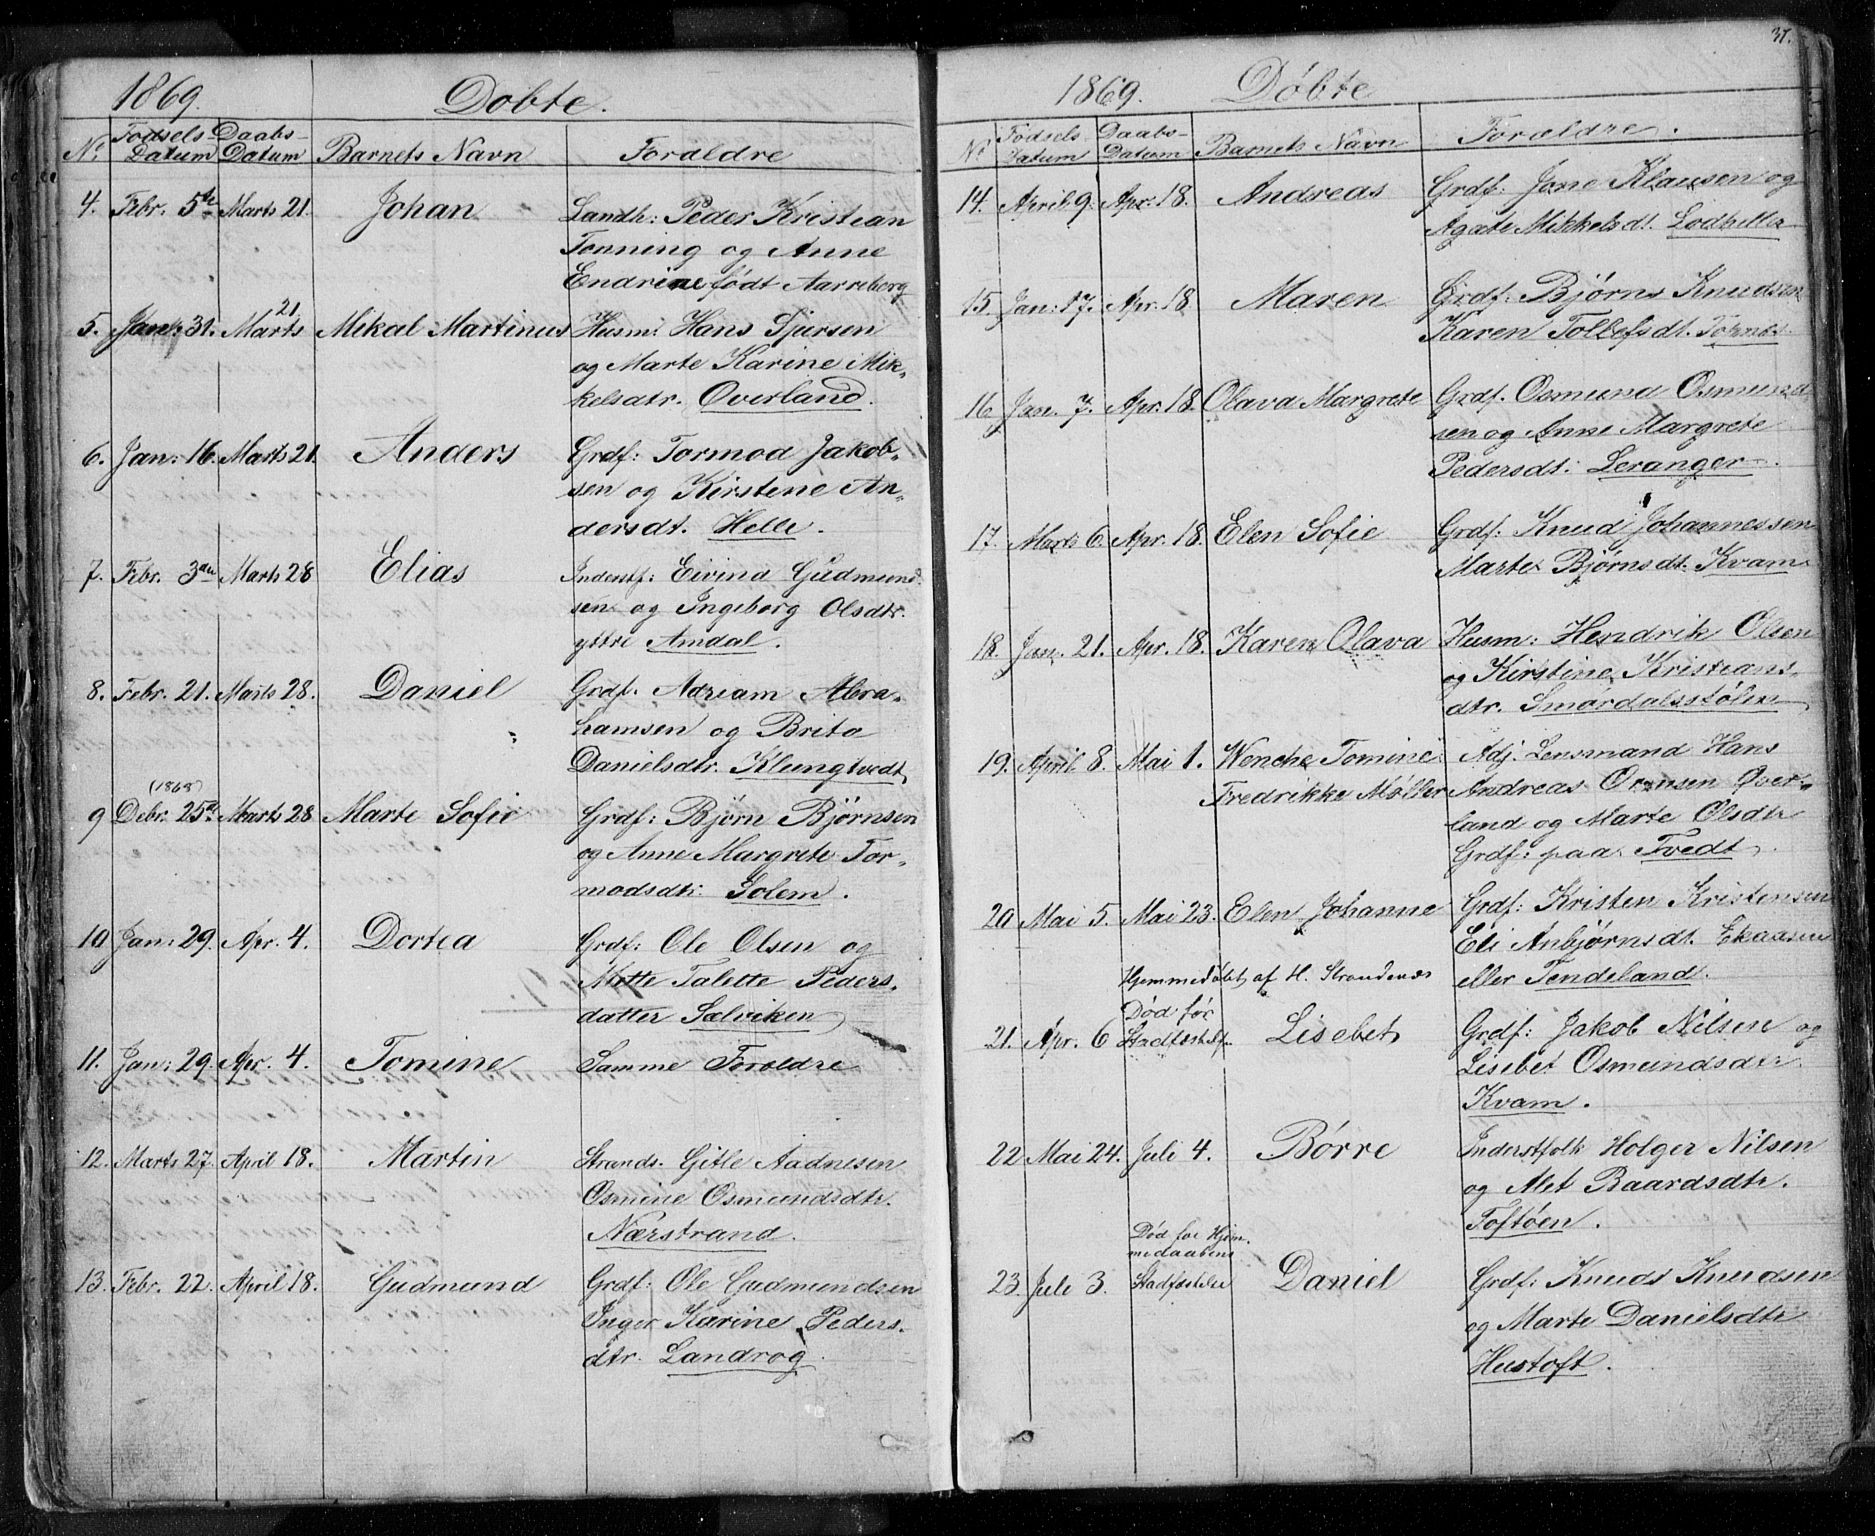 1869. Døbte.
No. Fødsels Datum Daabs Datum Barnets Navn Forældre
4. Febr. 5te Marts 21. Johan Landh: Peder Kristian
Tonning og Anne
Endrine født Aarreberg
5. Jan. 31. Marts 21 Mikal Martinus Husm: Hans Tjersen
og Marte Karine Mik-
kelsdtr. Øverland.
6. Jan: 16. Marts 21. Anders Grdf: Tormod Jakob-
sen og Kirstene An-
dersdt. Helle.
7. Febr. 3die Marts 28 Elias Inderstf: Eivind Gudmund
sen og Ingeborg Olsdtr.
yttre Amdal.
8. Febr. 21. Marts 28. Daniel Grdf. Adriam Abra-
hamsen og Brita
Danielsdtr. Klungtvedt
(1868)
9 Debr. 25de Marts 28 Marte Sofie Grdf: Bjørn Bjørnsen
og Anne Margrete Tor-
modsdt: Solem.
10 Jan: 29. Apr. 4. Dortea Grdf: Ole Olsen og
Mette Talette Peders-
datter Sælviken
11. Jan: 29. Apr. 4. Tomine Samme Forældre
12. Marts 27. April 18. Martin Strands. Gitle Aadnesen
Osmine Osmundsdtr.
Nærstrand.
13. Febr. 22. April 18. Gudmund Grdf: Ole Gudmundsen
Inger Karine Peders-
dtr. Landrog.
37.
1869. Døbte
No Fødsels Datum Daabs- Datum Barnets Navn Forældre.
14. April 9. Apr. 18. Andreas Grdf: Jone Klausen og
Agate Mikkelsdt. Lodhelle
15. Jan: 17. Apr. 18 Maren Grdf: Bjørns Knudsen
Karen Tollefsdt. Tornes.
16 Jan. 7. Apr. 18. Olava Margrete Grdf. Osmund Osmund
sen og Anne Margrete
Pedersdt: Leranger.
17. Marts 6. Apr. 18. Elen Sofie Grdf: Knud Johannessen
Marte Bjørnsdt. Kvam
18. Jan. 21. Apr. 18. Karen Olava Husm: Hendrik Olsen
og Kirstine Kristians-
dtr. Smørdalsstølen
19. April 8. Mai 1. Wenche Tomine Adj. Lensmand Hans
Fredrikke Møller Andreas Ormsen Øver-
land og Marte Olsdtr
Grdf: paa Tvedt.
20 Mai 5. Mai 23. Elen Johanne Grdf: Kristen Kristensen
Eli Anbjørnsdt. Ekaasen
Hjemmedøbt af H. Strandenæs eller Tendeland.
21. Apr. 6 Død før Stadfæstelse Lisebet Grdf: Jakob Nilsen og
Lisebet Osmundsdtr
Kvam.
22 Mai 24. Juli 4. Børre Inderstfolk Holger Nilsen
og Met Baardsdtr.
Toftøen.
Død før Hjem-
medaabens
23. Juli 3. Stadfæstelse Daniel Grdf: Knuds Knudsen
og Marte Danielsdtr
Hustoft.